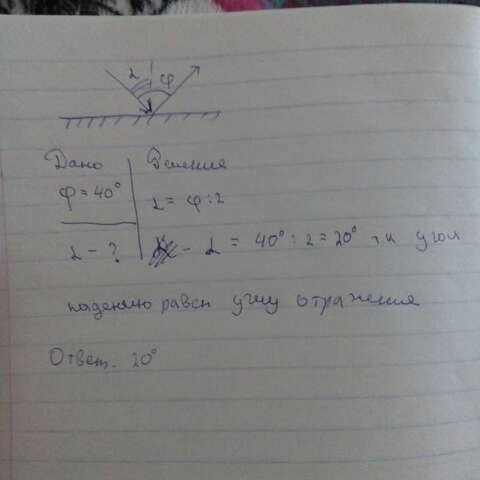 α φ
Дано Решение
φ = 40° α = φ : 2
α - ? - α = 40° : 2 = 20° т.к угол
падения равен углу отражения
Ответ. 20°